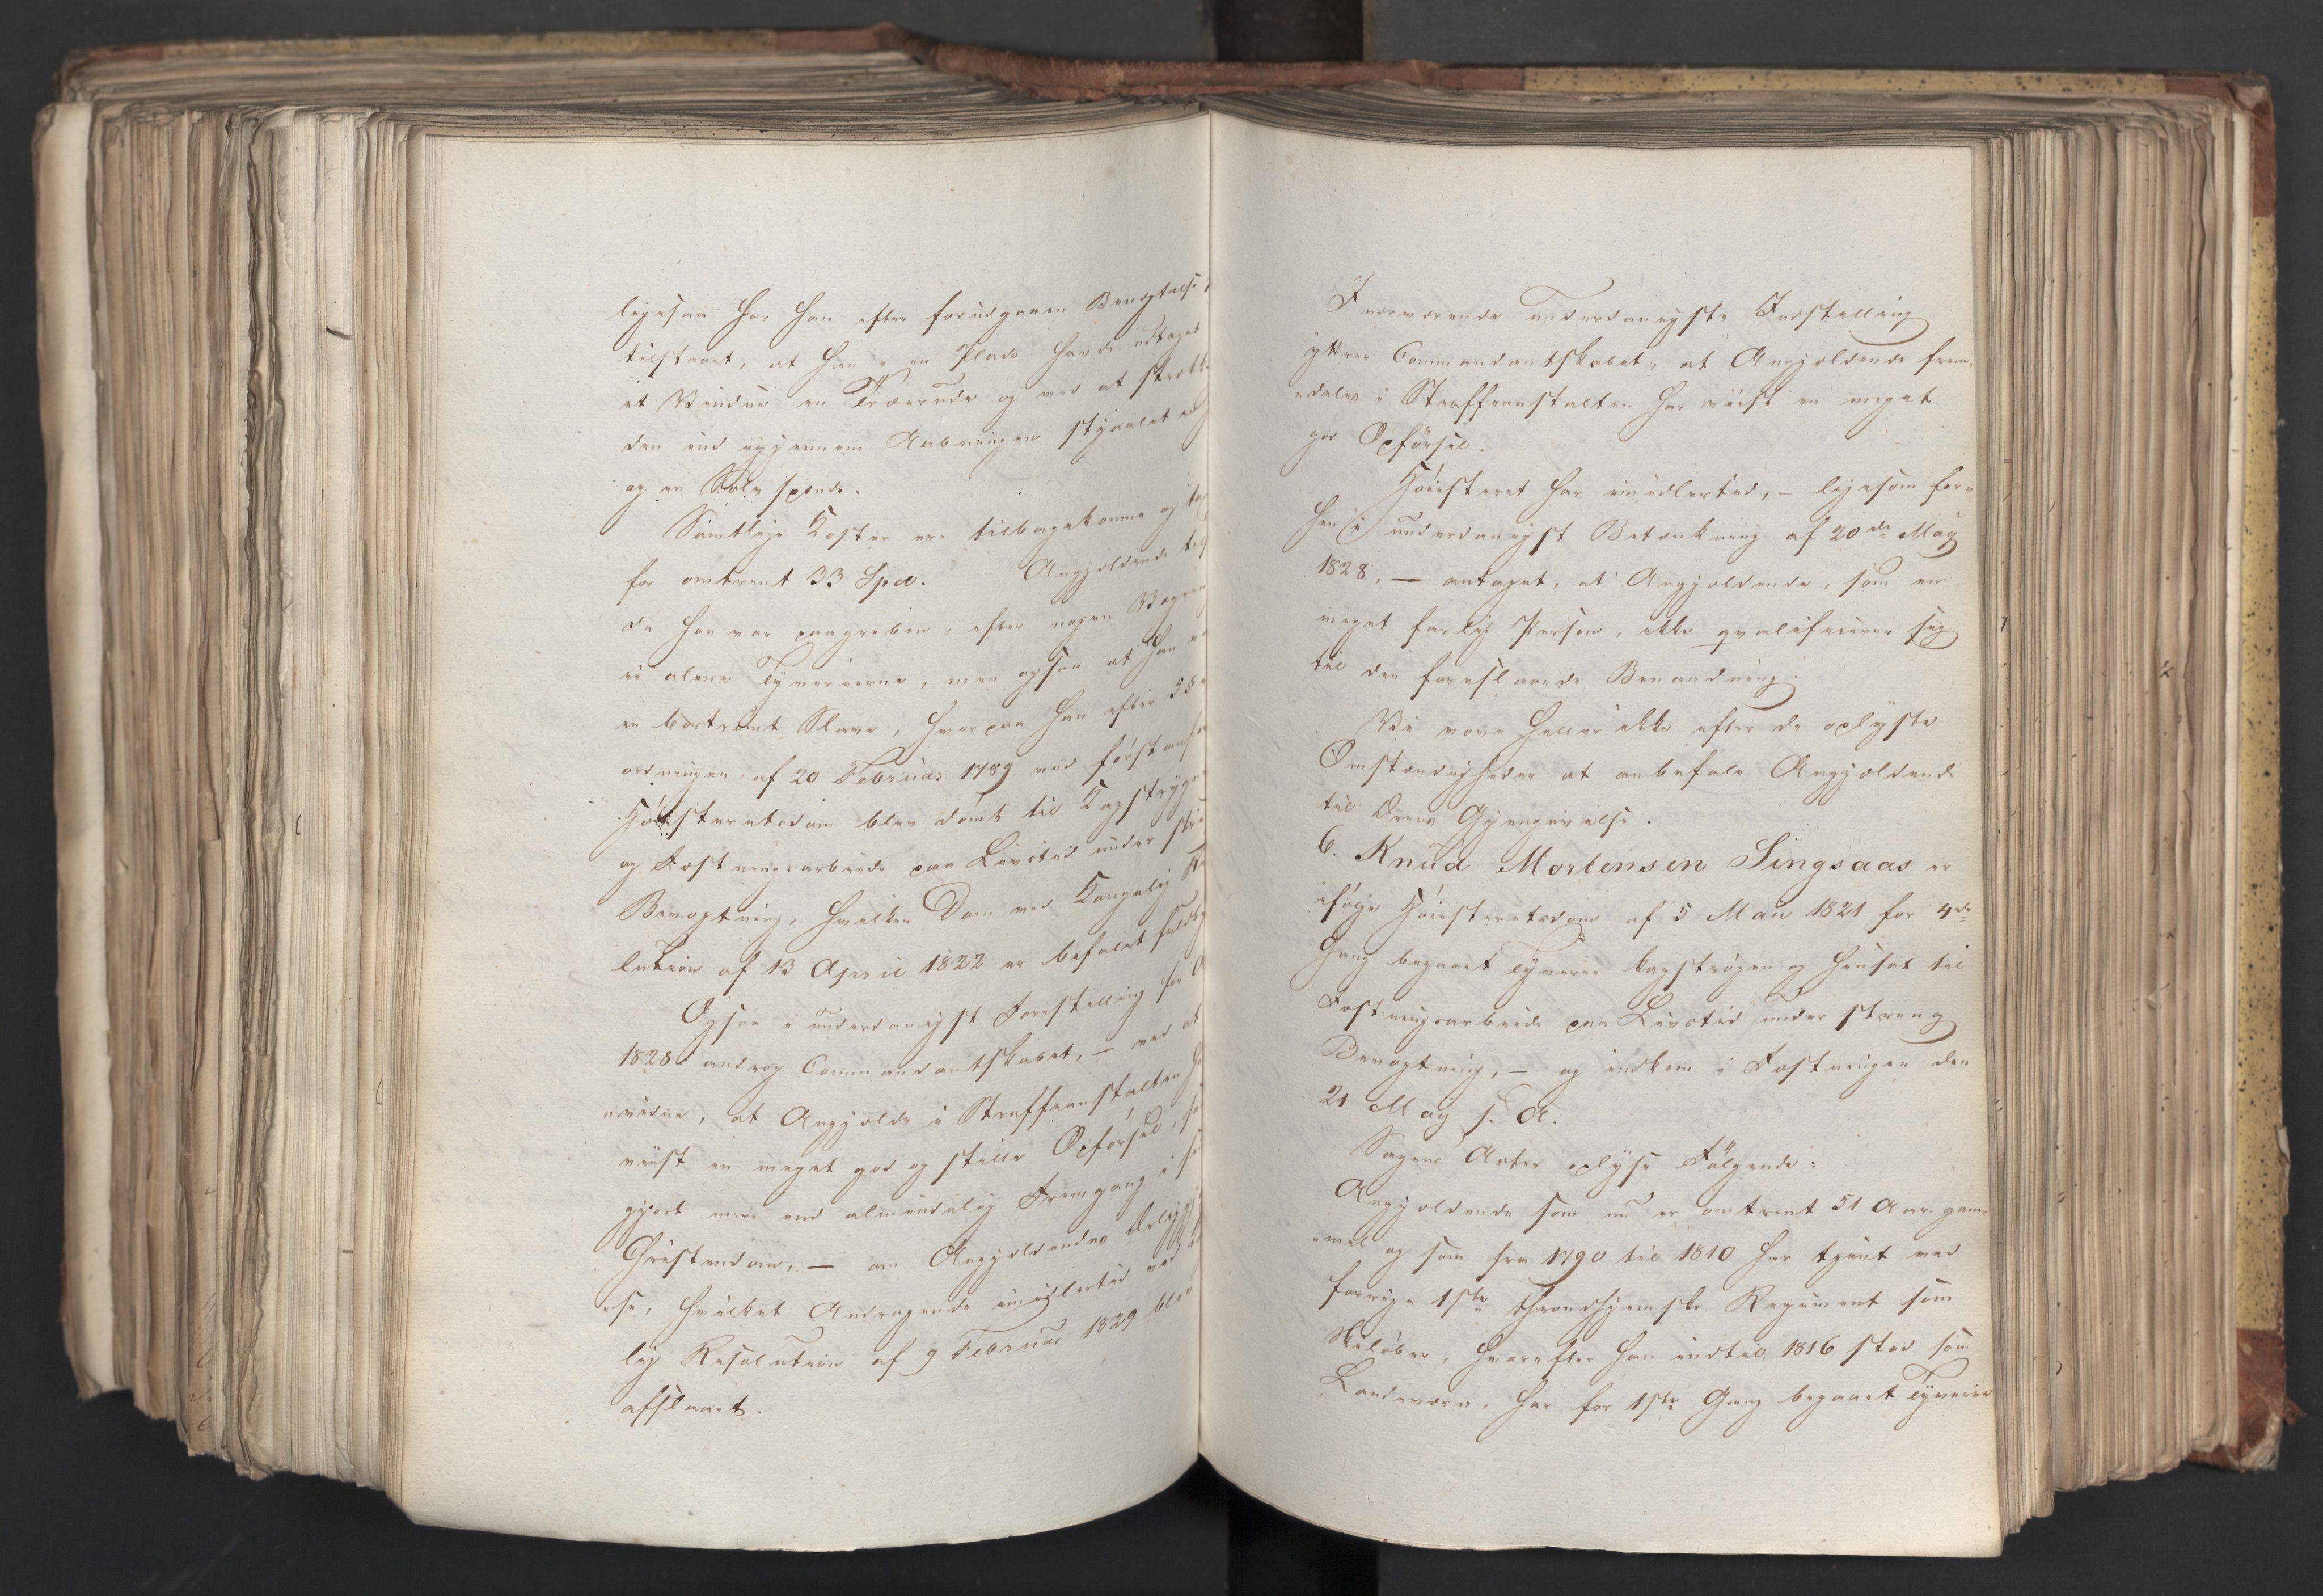 ligesaa har han efter forudgaaen Benægtelse
tilstaaet, at han i en Plads havde udtaget
et Vindue en Træerude og med at strække
den ind igjennem Aabningen stjaalet en
og en Sølv spende.
Samtlige Koster ere tilbagekomne og
for omtrent 33 Spd. Angjældende
da han var paagreben, efter nogen
ei alene Tyverierne, men ogsaa at han
en bortrømt Slave, hvorpaa han efter
ordningen af 20 Februar 1789 ved
Høiesteretsdom blev dømt til Kagstrygn
og Fæstningsarbeide paa Livstid under
Bevogtning, hvilken Dom ved Kongelig
lution af 13 April 1822 er befalet
Ogsaa i underdanigst Forestilling for
1828 androg Commandantskabet, – ved at
vidne, at Angjelds i Straffeanstalten
viist en meget god og stille Opførsel,
gjort mere end almindelig Fremgang i
Christendom, – om Angjældendes
se, hvilket Andragende imidlertid ved
lig Resolution af 9 Februar 1829 blev
afslaaet.
I nærværende underdanigste Indstilling
yttrer Commandantskabet, at Angjældende frem-
deles i Straffeanstalten har viist en meget
god Opførsel.
Høiesteret har imidlertid, – ligesom for-
hen i underdanigst Betænkning af 20de May
1828, – antaget, at Angjældende, som en
meget farlig Person, ikke qvalificerer sig
til den foreslaaede Benaadning.
Vi vove heller ikke efter de oplyste
Omstændigheder at anbefale Angjældende
til Ærens Gjengivelse.
6. Knud Mortensen Singsaas er
ifølge Høiesteretsdom af 5 Mai 1821 for 4de
Gang begaaet Tyverie kagstrøgen og hensat til
Fæstningsarbeide paa Livstid under streng
Bevogtning, – og indkom i Fæstningen den
21 May s. A.
Sagens Acter oplyse Følgende:
Angjældende som nu er omtrent 51 Aar gam-
mel og som fra 1790 til 1810 har tjent ved
forrige 1ste Throndhjemske Regiment som
Skiløber, hvorefter han indtil 1816 stod som
Landeværn, har for 1ste Gang begaaet Tyverie